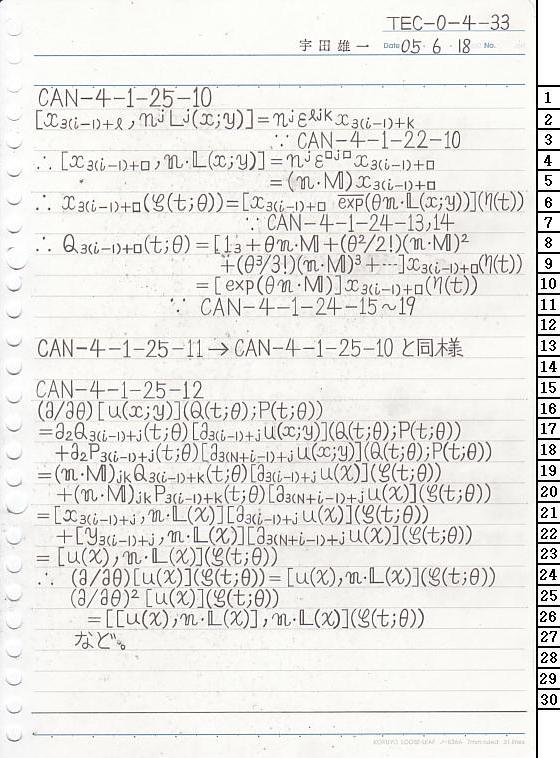 TEC-0-4-33
宇田雄一 Date 05・6・18 No.
CAN-4-1-25-10
[x₃₍ᵢ₋₁₎₊ℓ, nʲLʲ(x;y)]=nʲε^{ℓjk}x₃₍ᵢ₋₁₎₊ₖ
∵ CAN-4-1-22-10
∴ [x₃₍ᵢ₋₁₎₊□, 𝕟·𝕃(x;y)]=nʲε^{□j□}x₃₍ᵢ₋₁₎₊□
=(𝕟·𝕄)x₃₍ᵢ₋₁₎₊□
∴ x₃₍ᵢ₋₁₎₊□(ξ(t;θ))=[x₃₍ᵢ₋₁₎₊□ exp(θ𝕟·𝕃(x;y))](η(t))
∵ CAN-4-1-24-13,14
∴ Q₃₍ᵢ₋₁₎₊□(t;θ)=[1₃+θ𝕟·𝕄+(θ²/2!)(𝕟·𝕄)²
+(θ³/3!)(𝕟·𝕄)³+…]x₃₍ᵢ₋₁₎₊□(η(t))
=[exp(θ𝕟·𝕄)]x₃₍ᵢ₋₁₎₊□(η(t))
∵ CAN-4-1-24-15~19
CAN-4-1-25-11→CAN-4-1-25-10と同様
CAN-4-1-25-12
(∂/∂θ)[u(x;y)](Q(t;θ);P(t;θ))
=∂₂Q₃₍ᵢ₋₁₎₊ⱼ(t;θ)[∂₃₍ᵢ₋₁₎₊ⱼu(x;y)](Q(t;θ);P(t;θ))
+∂₂P₃₍ᵢ₋₁₎₊ⱼ(t;θ)[∂₃₍N₊ᵢ₋₁₎₊ⱼu(x;y)](Q(t;θ);P(t;θ))
=(𝕟·𝕄)ⱼₖQ₃₍ᵢ₋₁₎₊ₖ(t;θ)[∂₃₍ᵢ₋₁₎₊ⱼu(χ)](ξ(t;θ))
+(𝕟·𝕄)ⱼₖP₃₍ᵢ₋₁₎₊ₖ(t;θ)[∂₃₍N₊ᵢ₋₁₎₊ⱼu(χ)](ξ(t;θ))
=[x₃₍ᵢ₋₁₎₊ⱼ, 𝕟·𝕃(χ)][∂₃₍ᵢ₋₁₎₊ⱼu(χ)](ξ(t;θ))
+[y₃₍ᵢ₋₁₎₊ⱼ, 𝕟·𝕃(χ)][∂₃₍N₊ᵢ₋₁₎₊ⱼu(χ)](ξ(t;θ))
=[u(χ), 𝕟·𝕃(χ)](ξ(t;θ))
∴ (∂/∂θ)[u(χ)](ξ(t;θ))=[u(χ), 𝕟·𝕃(χ)](ξ(t;θ))
(∂/∂θ)²[u(χ)](ξ(t;θ))
=[[u(χ), 𝕟·𝕃(χ)], 𝕟·𝕃(χ)](ξ(t;θ))
など。
1
2
3
4
5
6
7
8
9
10
11
12
13
14
15
16
17
18
19
20
21
22
23
24
25
26
27
28
29
30
KOKUYO LOOSE-LEAF ノ-836A 7mm ruled 31 lines